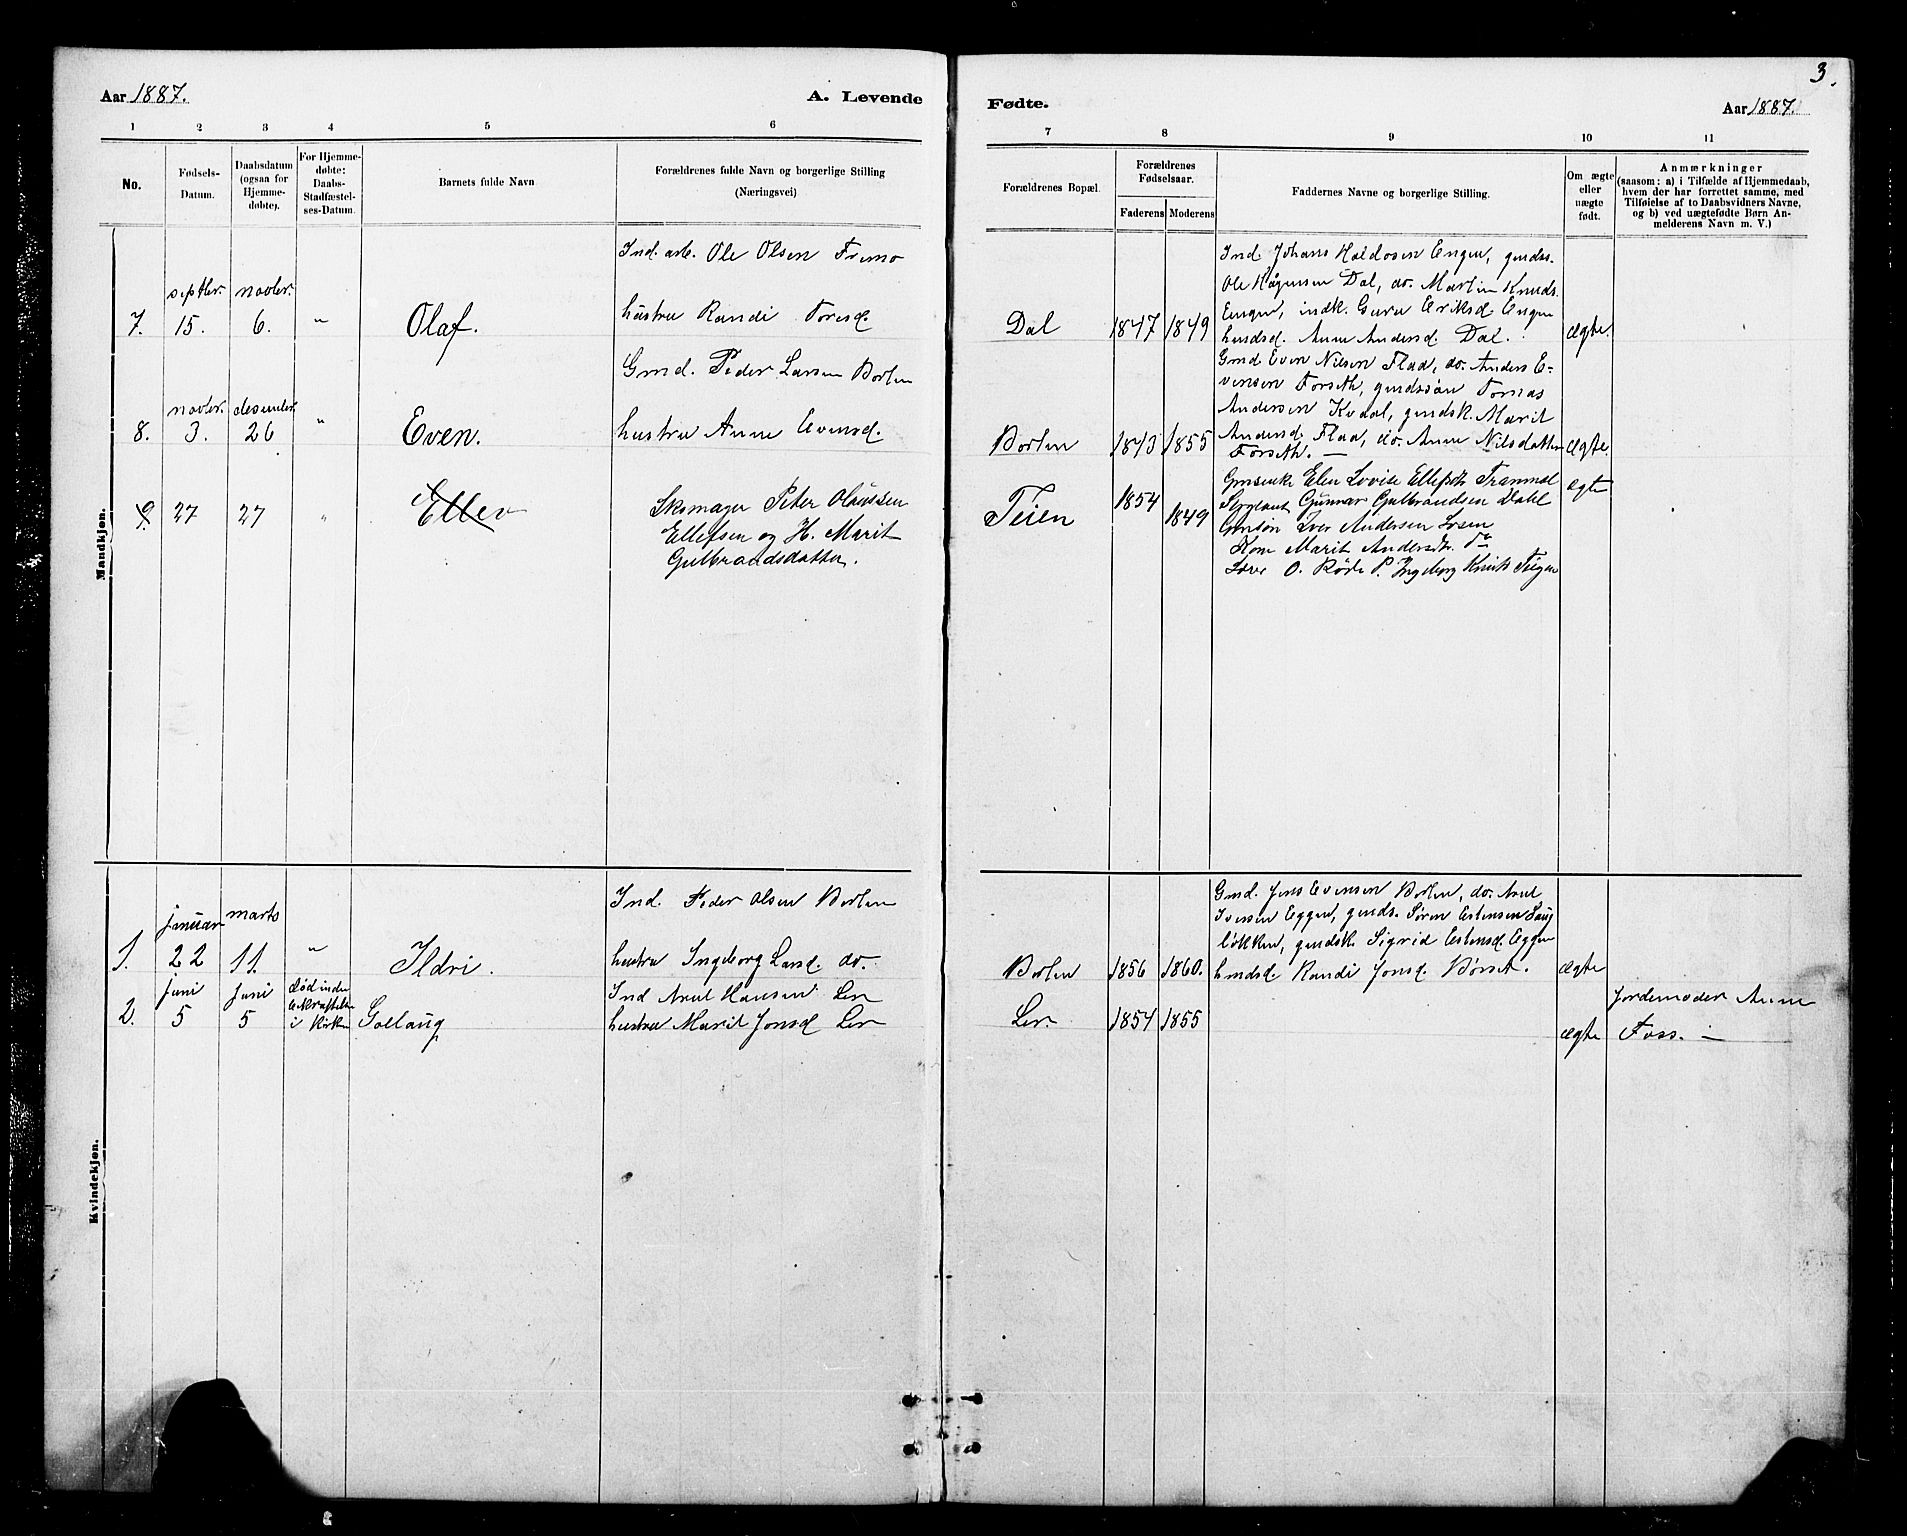 3.
Aar 1887.
A. Levende
Fødte.
Aar 1887.
1 2 3 4 5 6 7 8 9 10 11
No.
Fødsels-
Datum.
Daabsdatum
(ogsaa for
Hjemme-
døbte).
For Hjemme-
døbte:
Daabs-
Stadfæstel-
ses-Datum.
Barnets fulde Navn
Forældrenes fulde Navn og borgerlige Stilling
(Næringsvei)
Forældrenes Bopæl.
Forældrenes
Fødselsaar.
Faderens Moderens
Faddernes Navne og borgerlige Stilling.
Om ægte
eller
uægte
født.
Anmærkninger
(saasom: a) i Tilfælde af Hjemmedaab,
hvem der har forrettet samme, med
Tilføielse af to Daabsvidners Navne,
og b) ved uægtefødte Børn An-
melderens Navn m. V.)
Mandkjøn.
7.
septbr.
15.
novbr.
6.
"
Olaf.
Ind. arb. Ole Olsen Fremo
hustru Randi Toresd.
Dal
1847 1849
Ind. Johans Haldosen Engen, gmdss.
Ole Hågensen Dal, do. Martin Knuds.
Engen, indk. Guru Eriksd Engen
hmdsd. Anne Andersd. Dal.
ægte.
8.
novbr.
3.
desember
26
"
Even.
Gmd. Peder Larsen Borten
hustru Anne Evensd.
Borten
1843 1855
Gmd Even Nilsen Flaa, do. Anders E-
vensen Forseth, gmdssön Tomas
Andersen Kvaal, gmdsk. Marit
Andersd. Flaa, do. Anne Nilsdatter
Forseth. —
ægte.
9
27
27
"
Ellev
Skomager Peter Olaussen
Ellefsen og H. Marit
Gulbrandsdatter.
Teien
1854
1849
Gmsenke Elen Lovise Ellefsdt Tranmæl
Sergeant Gunnar Gulbrandsen Dahl
Gmsøn Iver Andersen Losen
Kone Marit Andersdt. do
Lærer O. Røde P. Ingeborg Teigen
ægte
Kvindekjøn.
1.
januar
22
marts
11.
"
Ildri.
Ind. Peder Olsen Borten
hustru Ingeborg Larsd. do.
Borten
1856 1860.
Gmd. Jens Evensen Borten, do. Arnt
Iversen Eggen, gmds. Søren Estensen Laug
løkken, gmdsk. Sigrid Estensd. Eggen
hmdsd Randi Jonsd. Børset.
ægte
2.
juni
5
juni
5
død inden
bekræftelsen
i Kirken
Gollaug
Ind Arnt Hansen Ler
hustru Marit Jonsd Ler
Ler.
1854 1855
ægte
Jordemoder Anne
Foss. —